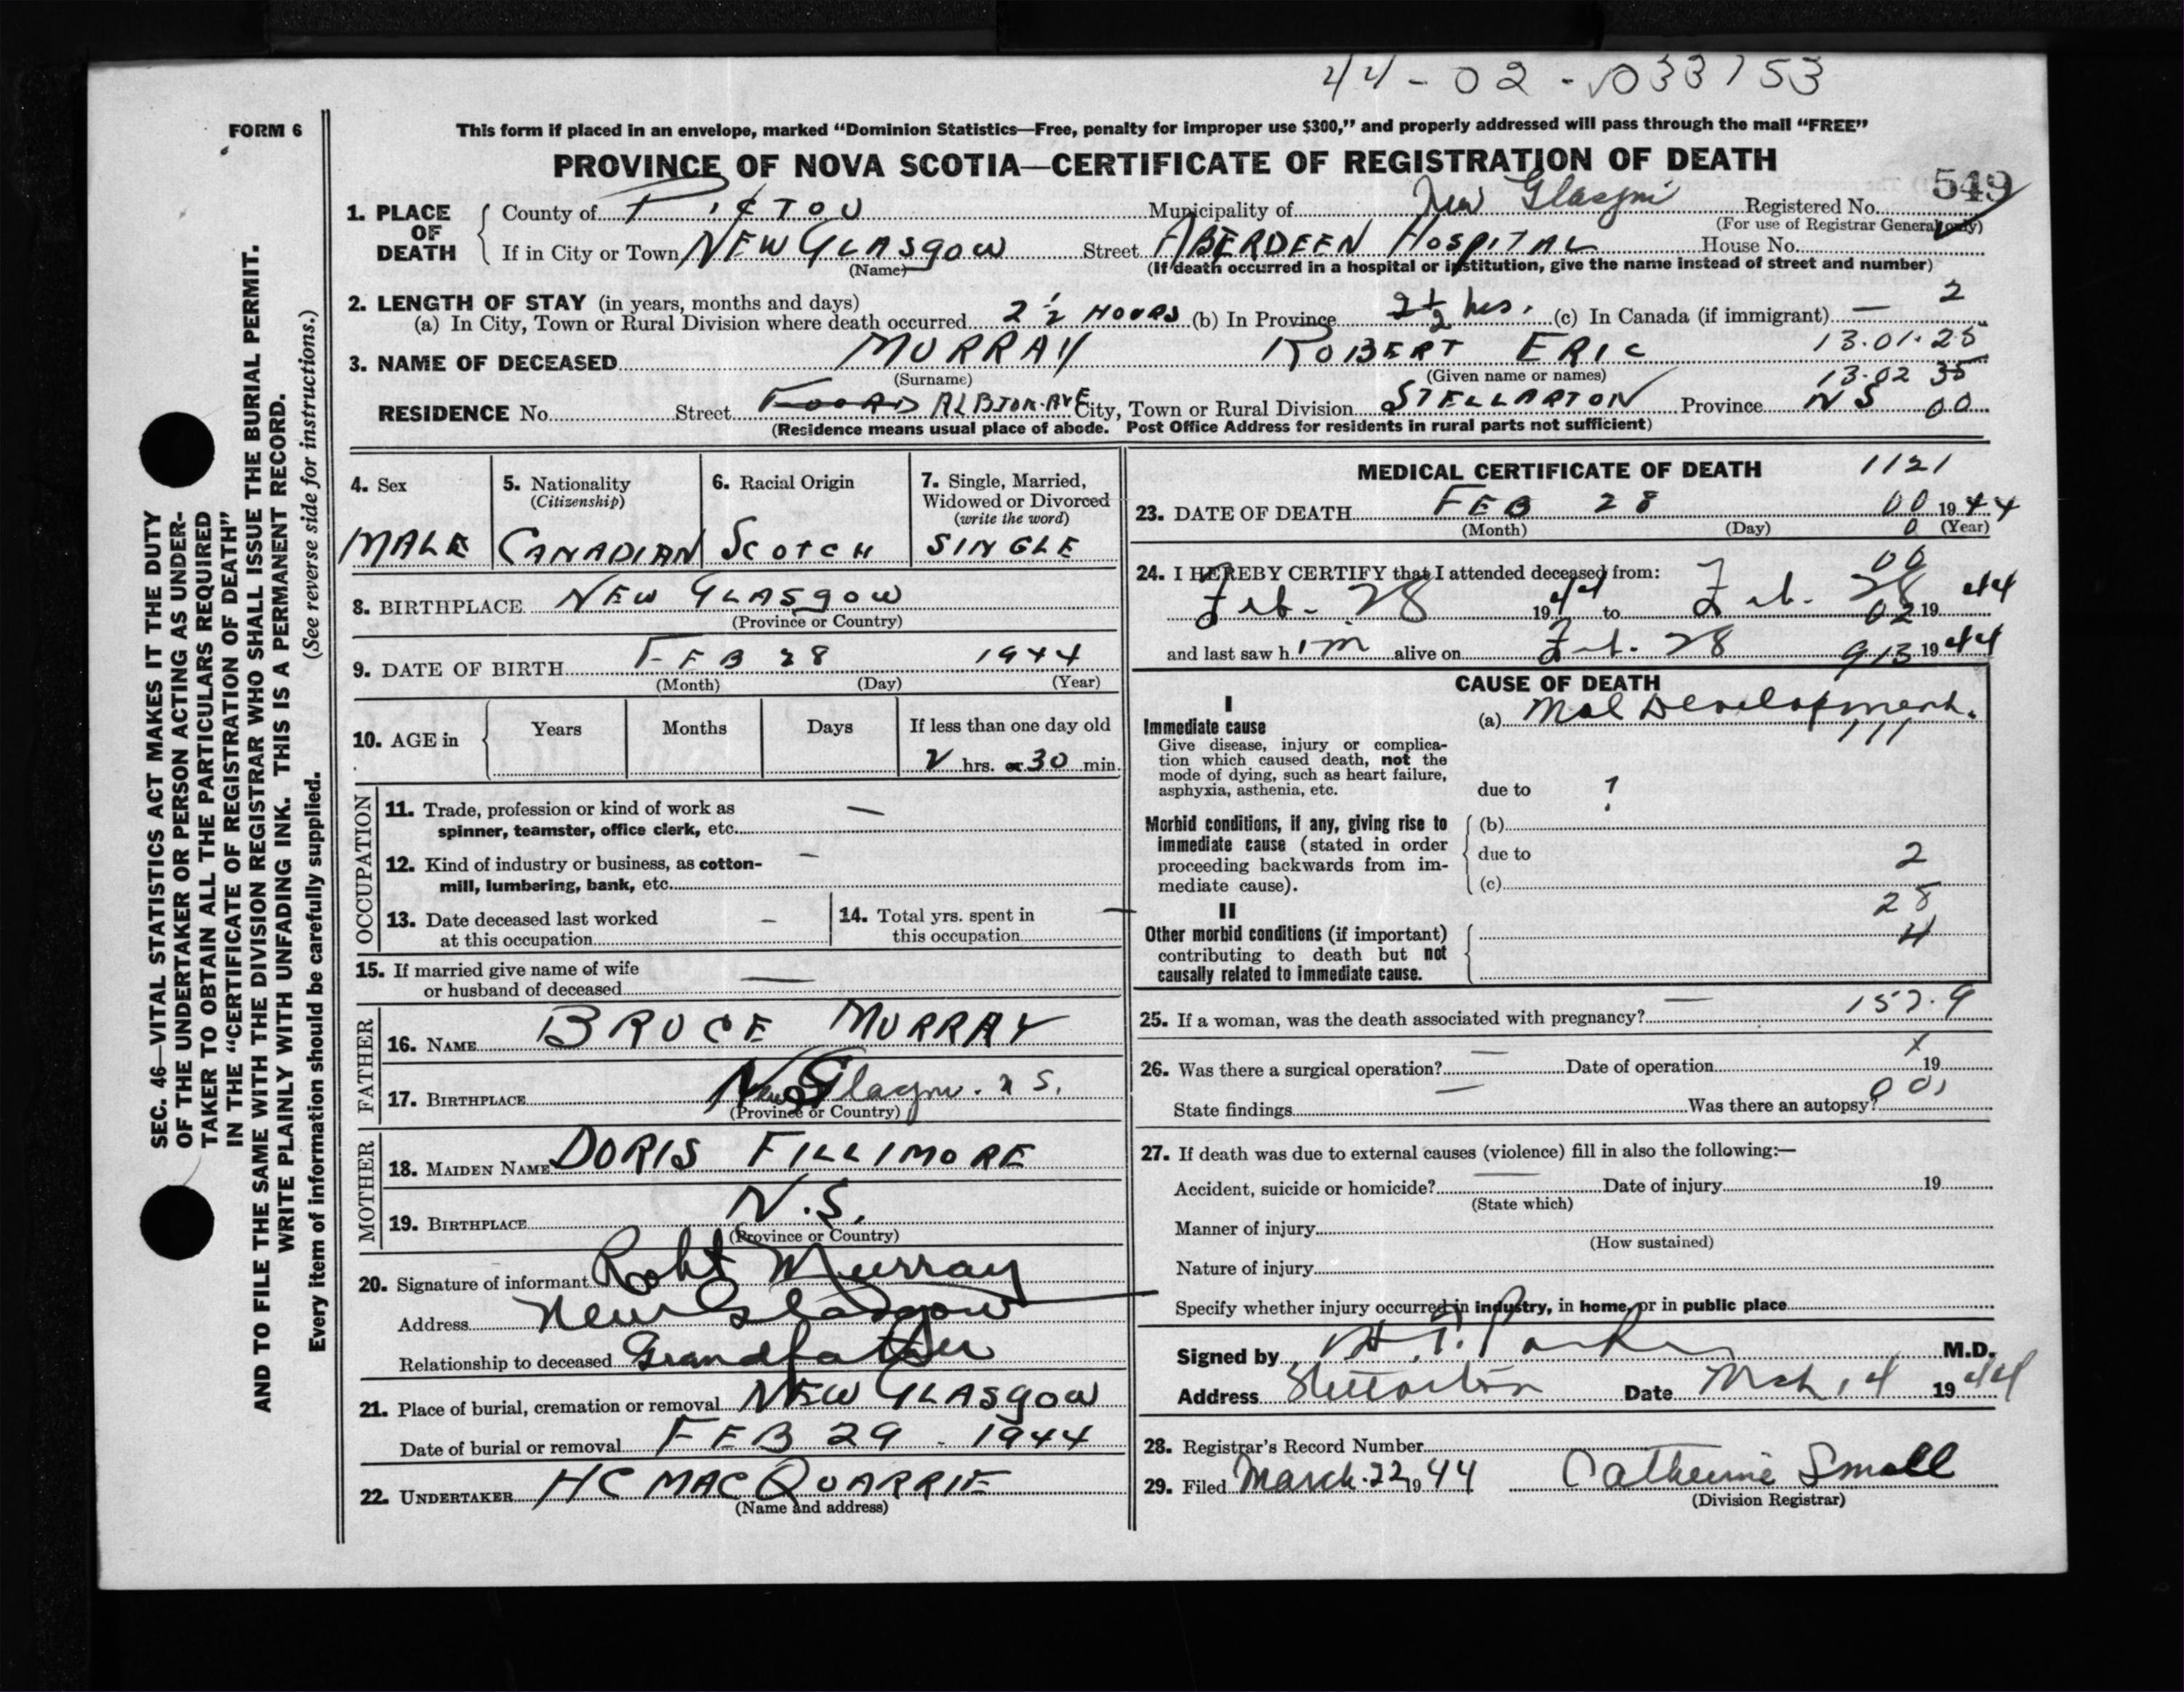 44-02-033153
FORM 6
This form if placed in an envelope, marked "Dominion Statistics—Free, penalty for improper use $300," and properly addressed will pass through the mail "FREE"
PROVINCE OF NOVA SCOTIA—CERTIFICATE OF REGISTRATION OF DEATH
549
1. PLACE OF DEATH
County of PICTOU Municipality of New Glasgow Registered No.
(For use of Registrar General only)
If in City or Town NEW GLASGOW Street ABERDEEN HOSPITAL House No.
(Name) (If death occurred in a hospital or institution, give the name instead of street and number)
2. LENGTH OF STAY (in years, months and days) 2
(a) In City, Town or Rural Division where death occurred 2 ½ HOURS (b) In Province 2½ hrs. (c) In Canada (if immigrant) —
3. NAME OF DECEASED MURRAY ROBERT ERIC 13.01.25
(Surname) (Given name or names) 13.02 35
RESIDENCE No. Street FOORD ALBION AVE City, Town or Rural Division STELLARTON Province NS 00
(Residence means usual place of abode. Post Office Address for residents in rural parts not sufficient)
4. Sex
MALE
5. Nationality
(Citizenship)
CANADIAN
6. Racial Origin
SCOTCH
7. Single, Married,
Widowed or Divorced
(write the word)
SINGLE
8. BIRTHPLACE NEW GLASGOW
(Province or Country)
9. DATE OF BIRTH FEB 28 1944
(Month) (Day) (Year)
10. AGE in Years Months Days If less than one day old
2 hrs. or 30 min.
OCCUPATION
11. Trade, profession or kind of work as —
spinner, teamster, office clerk, etc.
12. Kind of industry or business, as cotton- —
mill, lumbering, bank, etc.
13. Date deceased last worked —
at this occupation
14. Total yrs. spent in —
this occupation
15. If married give name of wife
or husband of deceased —
FATHER
16. NAME BRUCE MURRAY
17. BIRTHPLACE New Glasgow. N S.
(Province or Country)
MOTHER
18. MAIDEN NAME DORIS FILLIMORE
19. BIRTHPLACE N.S.
(Province or Country)
20. Signature of informant Robt Murray
Address New Glasgow
Relationship to deceased Grandfather
21. Place of burial, cremation or removal NEW GLASGOW
Date of burial or removal FEB 29 - 1944
22. UNDERTAKER HC MACQUARRIE
(Name and address)
MEDICAL CERTIFICATE OF DEATH 1121
23. DATE OF DEATH FEB 28 00 1944
(Month) (Day) 0 (Year)
24. I HEREBY CERTIFY that I attended deceased from: 00
Feb. 28 1944 to Feb. 28 02 1944
and last saw h im alive on Feb. 28 913 1944
CAUSE OF DEATH
I
Immediate cause
Give disease, injury or complica-
tion which caused death, not the
mode of dying, such as heart failure,
asphyxia, asthenia, etc.
(a) Mal Development.
due to ?
Morbid conditions, if any, giving rise to
immediate cause (stated in order
proceeding backwards from im-
mediate cause).
(b)
due to 2
(c)
28
II
Other morbid conditions (if important)
contributing to death but not
causally related to immediate cause.
4
25. If a woman, was the death associated with pregnancy? — 157.9
26. Was there a surgical operation? — Date of operation X 19
State findings — Was there an autopsy? 001
27. If death was due to external causes (violence) fill in also the following:—
Accident, suicide or homicide? — Date of injury 19
(State which)
Manner of injury
(How sustained)
Nature of injury
Specify whether injury occurred in industry, in home, or in public place
Signed by M.D.
Address Stellarton Date Mch, 4 1944
28. Registrar's Record Number
29. Filed March 22 1944 Catherine Small
(Division Registrar)
SEC. 46—VITAL STATISTICS ACT MAKES IT THE DUTY
OF THE UNDERTAKER OR PERSON ACTING AS UNDER-
TAKER TO OBTAIN ALL THE PARTICULARS REQUIRED
IN THE "CERTIFICATE OF REGISTRATION OF DEATH"
AND TO FILE THE SAME WITH THE DIVISION REGISTRAR WHO SHALL ISSUE THE BURIAL PERMIT.
WRITE PLAINLY WITH UNFADING INK. THIS IS A PERMANENT RECORD.
Every item of information should be carefully supplied. (See reverse side for instructions.)